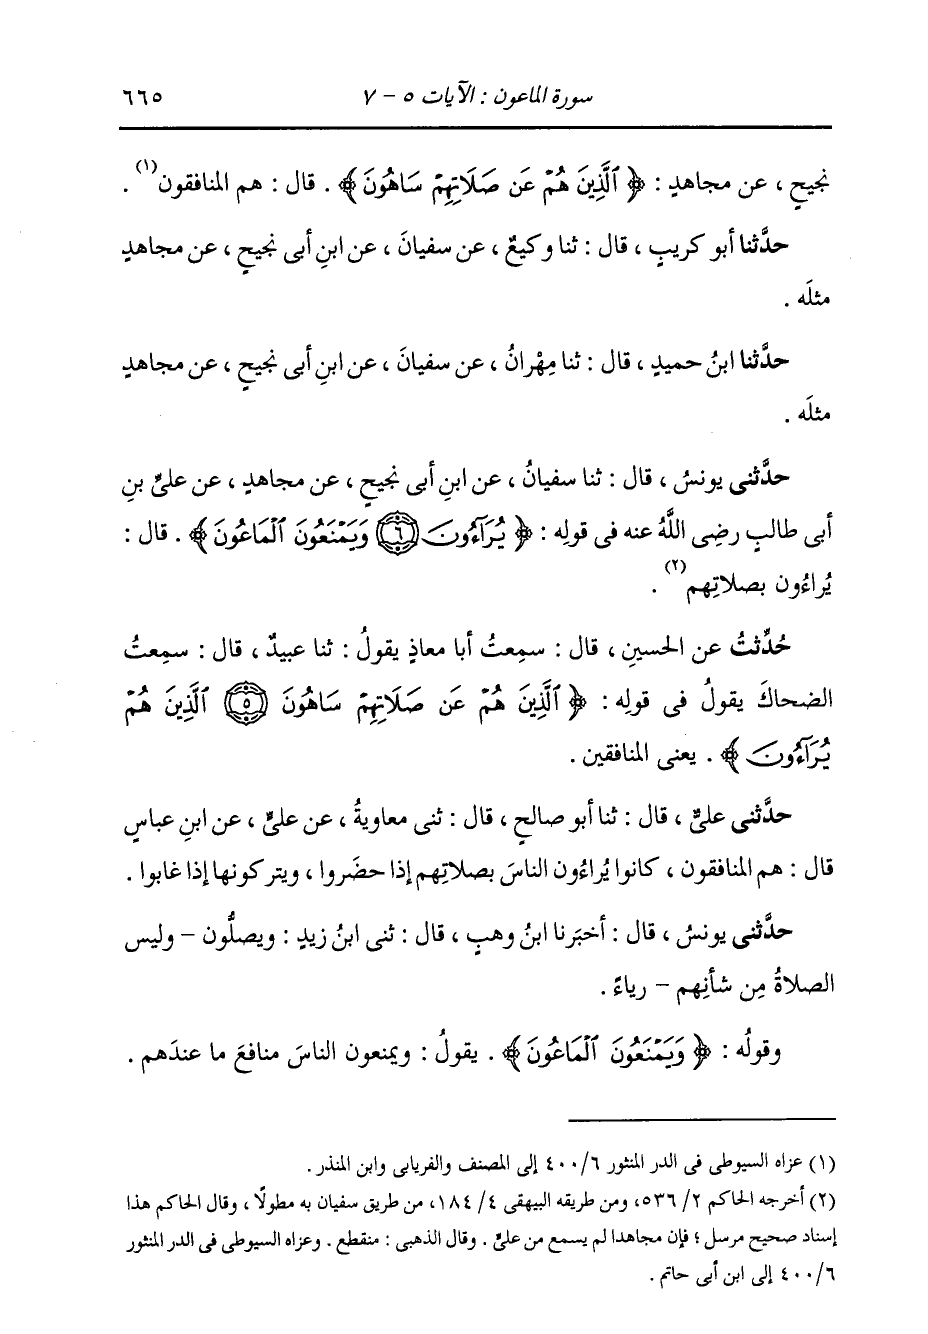 سورة الماعون : الآيات ٥ - ٧ ٦٦٥
نجيحٍ ، عن مجاهدٍ : ﴿ ٱلَّذِينَ هُمْ عَن صَلَاتِهِمْ سَاهُونَ ﴾ . قال : هم المنافقون(١) .
حدَّثنا أبو كريبٍ ، قال : ثنا وكيعٌ ، عن سفيانَ ، عن ابنِ أبى نجيحٍ ، عن مجاهدٍ
مثلَه .
حدَّثنا ابنُ حميدٍ ، قال : ثنا مِهْرانُ ، عن سفيانَ ، عن ابنِ أبى نجيحٍ ، عن مجاهدٍ
مثلَه .
حدَّثنى يونسُ ، قال : ثنا سفيانُ ، عن ابنِ أبى نجيحٍ ، عن مجاهدٍ ، عن علىِّ بنِ
أبى طالبٍ رضِى اللَّهُ عنه فى قولِه : ﴿ يُرَآءُونَ ۝٦ وَيَمْنَعُونَ ٱلْمَاعُونَ ﴾ . قال :
يُراءُون بصلاتِهم(٢) .
حُدِّثتُ عن الحسينِ ، قال : سمِعتُ أبا معاذٍ يقولُ : ثنا عبيدٌ ، قال : سمِعتُ
الضحاكَ يقولُ فى قولِه : ﴿ ٱلَّذِينَ هُمْ عَن صَلَاتِهِمْ سَاهُونَ ۝٥ ٱلَّذِينَ هُمْ
يُرَآءُونَ ﴾ . يعنى المنافقين .
حدَّثنى علىٌّ ، قال : ثنا أبو صالحٍ ، قال : ثنى معاويةُ ، عن علىٍّ ، عن ابنِ عباسٍ
قال : هم المنافقون ، كانوا يُراءُون الناسَ بصلاتِهم إذا حضَروا ، ويتركونها إذا غابوا .
حدَّثنى يونسُ ، قال : أخبَرنا ابنُ وهبٍ ، قال : ثنى ابنُ زيدٍ : ويصلُّون - وليس
الصلاةُ مِن شأنِهم - رياءً .
وقولُه : ﴿ وَيَمْنَعُونَ ٱلْمَاعُونَ ﴾ . يقولُ : ويمنعون الناسَ منافعَ ما عندَهم .
(١) عزاه السيوطى فى الدر المنثور ٤٠٠/٦ إلى المصنف والفريابى وابن المنذر .
(٢) أخرجه الحاكم ٢/ ٥٣٦، ومن طريقه البيهقى ٤/ ١٨٤، من طريق سفيان به مطولًا ، وقال الحاكم هذا
إسناد صحيح مرسل ؛ فإن مجاهدا لم يسمع من علىٍّ . وقال الذهبى : منقطع . وعزاه السيوطى فى الدر المنثور
٤٠٠/٦ إلى ابن أبى حاتم .